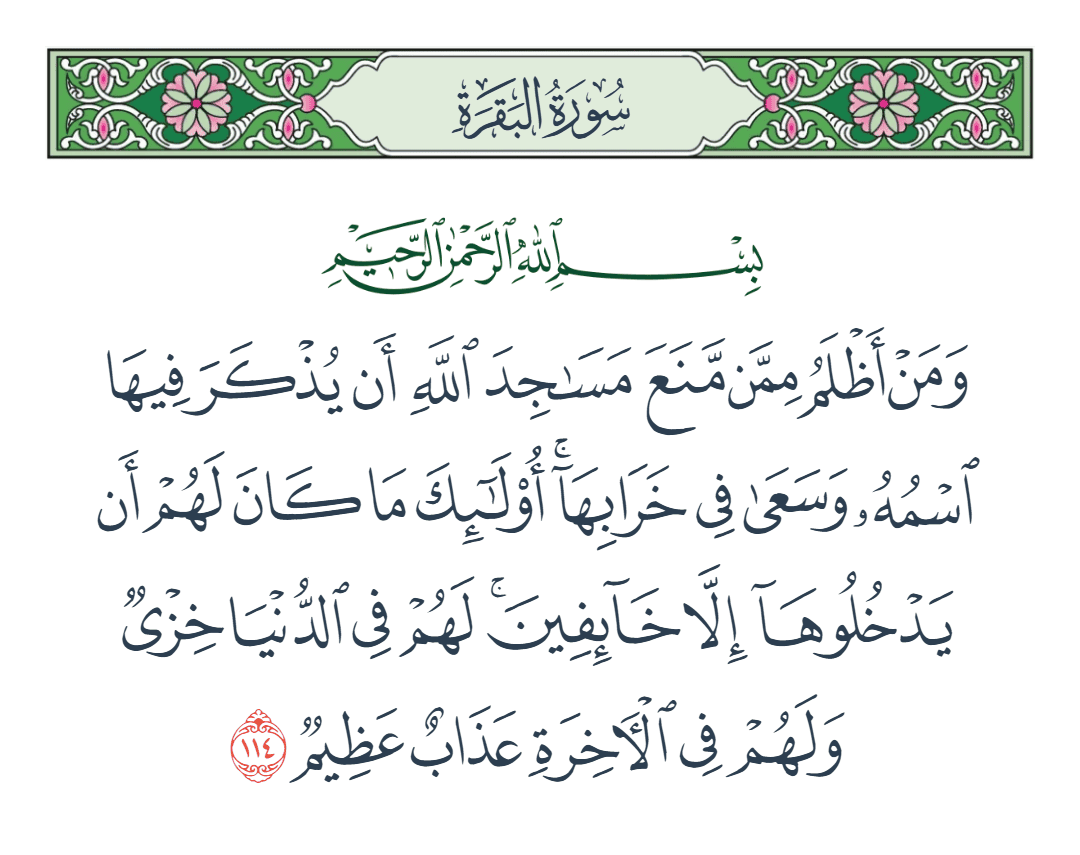 سُورَةُ البَقَرَةِ
بِسْمِ ٱللَّهِ ٱلرَّحْمَٰنِ ٱلرَّحِيمِ
وَمَنْ أَظْلَمُ مِمَّن مَّنَعَ مَسَـٰجِدَ ٱللَّهِ أَن يُذْكَرَ فِيهَا
ٱسْمُهُۥ وَسَعَىٰ فِى خَرَابِهَآ ۚ أُو۟لَـٰٓئِكَ مَا كَانَ لَهُمْ أَن
يَدْخُلُوهَآ إِلَّا خَآئِفِينَ ۚ لَهُمْ فِى ٱلدُّنْيَا خِزْىٌ
وَلَهُمْ فِى ٱلْـَٔاخِرَةِ عَذَابٌ عَظِيمٌ ١١٤